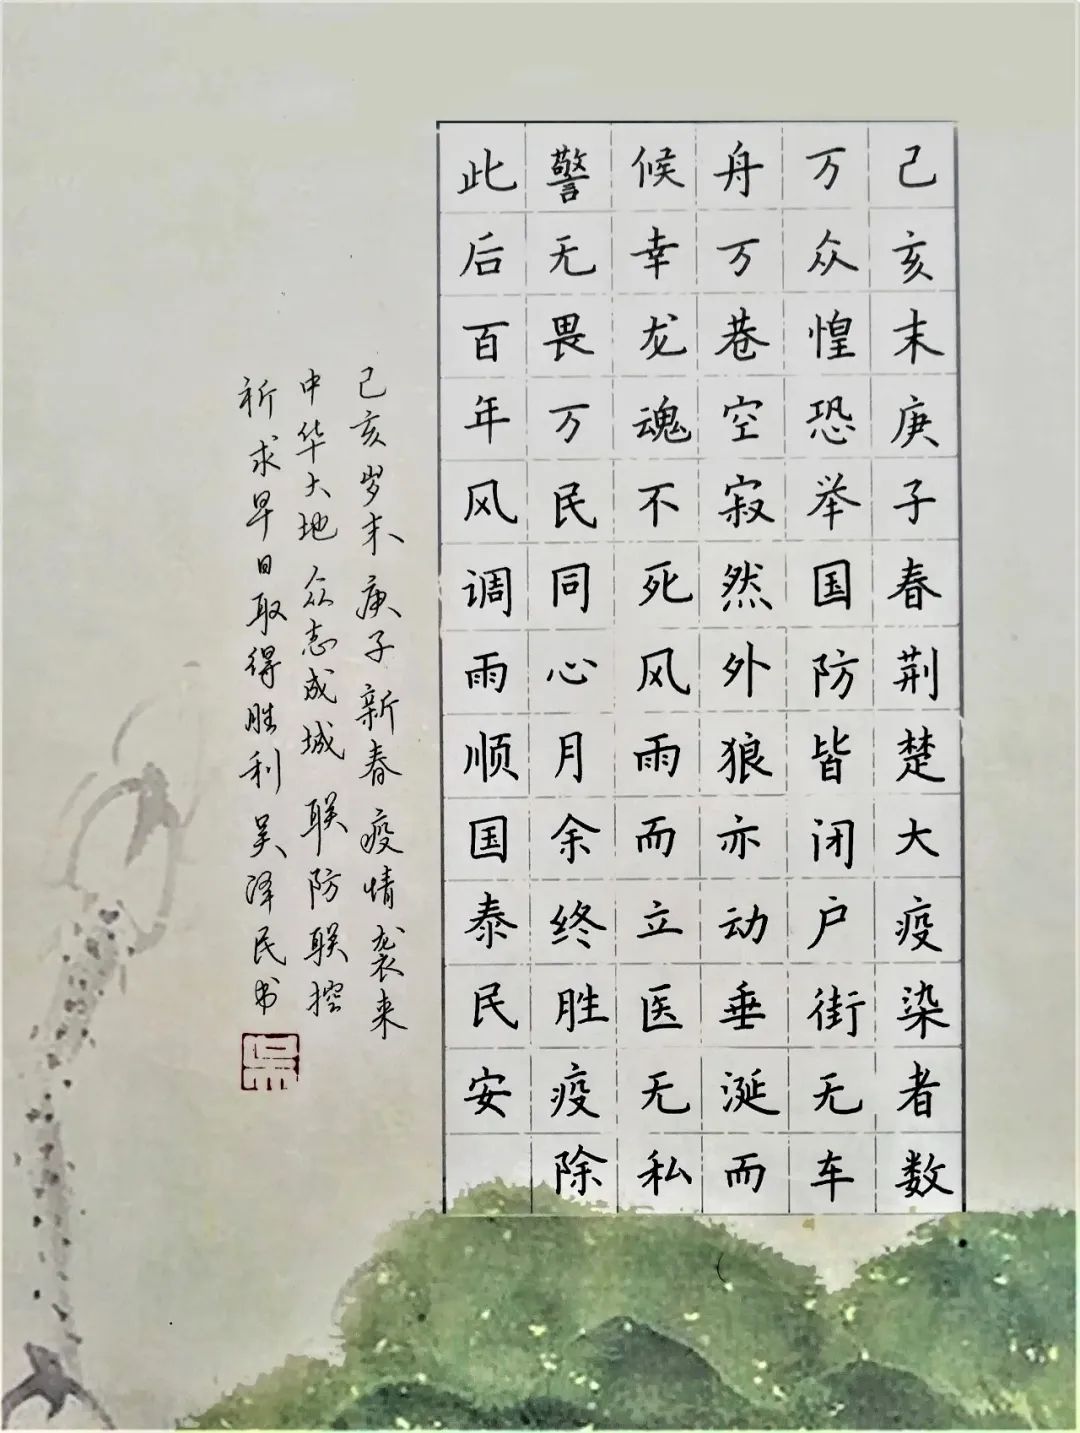 己亥末庚子春荆楚大疫染者数
万众惶恐举国防皆闭户街无车
舟万巷空寂然外狼亦动垂涎而
候幸龙魂不死风雨而立医无私
警无畏万民同心月余终胜疫除
此后百年风调雨顺国泰民安
己亥岁末庚子新春疫情袭来
中华大地众志成城联防联控
祈求早日取得胜利吴泽民书